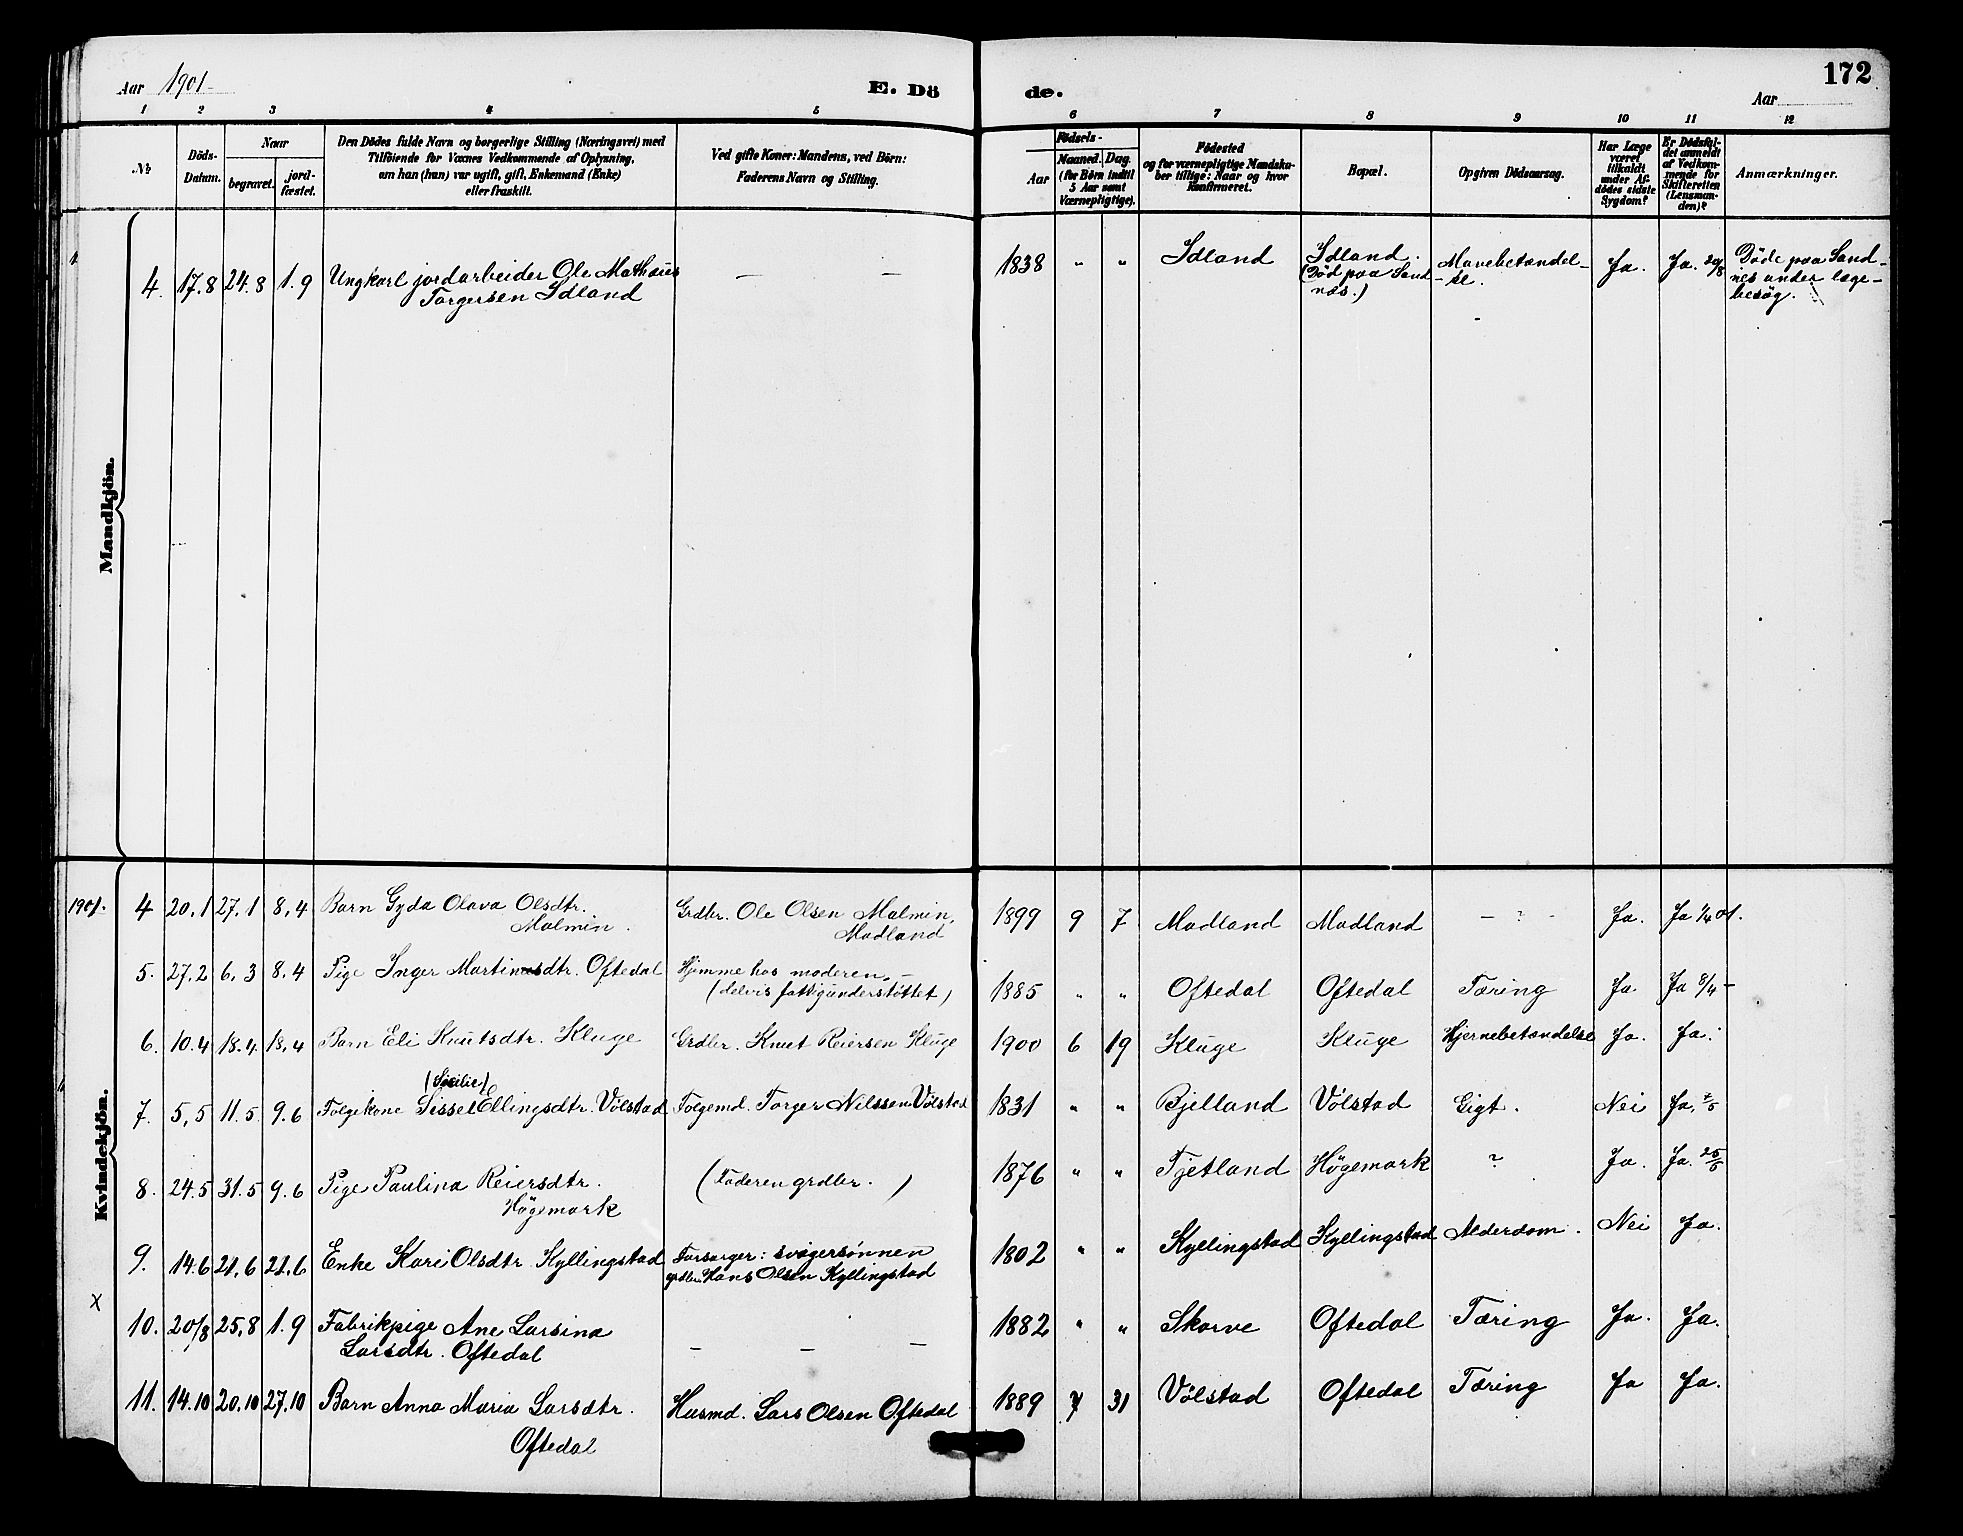 172
Aar 1901
E. Dö de.
Aar
1 2 3 4 5 6 7 8 9 10 11 12
№
Döds-
Datum.
Naar
begravet.
jord-
fæstet.
Den Dödes fulde Navn og borgerlige Stilling (Næringsvei) med
Tilföiende for Voxnes Vedkommende af Oplysning,
om han (hun) var ugift, gift, Enkemand (Enke)
eller fraskilt.
Ved gifte Koner: Mandens, ved Börn:
Faderens Navn og Stilling.
Födsels-
Aar
Maaned. Dag.
(for Börn indtil
5 Aar samt
Værnepligtige).
Födested
og for værnepligtige Mandska-
ber tillige: Naar og hvor
Konfirmeret.
Bopæl.
Opgiven Dödsaarsag.
Har Læge
været
tilkaldt
under Af-
dödes sidste
Sygdom?
Er Dödsfal-
det anmeldt
af Vedkom-
mende for
Skifteretten
(Lensman-
den)?
Anmærkninger.
Mandkjön.
4. 17.8 24.8 1.9 Ungkarl jordarbeider Ole Mathæus — — 1838 " " Idland Idland. Mavebetændel- Ja. Ja. 20/8 Döde paa Sand-
Torgersen Idland (Död paa Sand -se. nes under læge-
næs.) besög.
Kvindekjön.
1901. 4 20.1 27.1 8.4 Barn Gyda Olava Olsdtr. Grdbr. Ole Olsen Malmin, 1899 9 7 Madland Madland - ? - Ja. Ja 1/4 01.
Malmin. Madland
5. 27.2 6.3 8.4 Pige Inger Martinusdtr. Oftedal Hjemme hos moderen
(delvis fattigunderstöttet) 1885 " " Oftedal Oftedal Tæring Ja. Ja 8/4 -
6. 10.4 18.4 18.4 Barn Eli Knutsdtr. Kluge Grdbr. Knut Reiersen Kluge 1900 6 19 Kluge Kluge Hjernebetændelse Ja. Ja.
(Sicilie)
7. 5.5 11.5 9.6 Folgekone Sissel Ellingsdtr. Völstad Folgemd. Torger Nilssen Völstad 1831 " " Bjelland Völstad Gigt. Nei Ja. 7/5
8. 24.5 31.5 9.6 Pige Paulina Reiersdtr. (Faderen grdbr.) 1876 " " Tjetland Högemark ? Ja. Ja. 25/5
Högemark
9. 14.6 21.6 21.6 Enke Kari Olsdtr. Kyllingstad Forsørger: svogersønnen 1802 " " Kyllingstad Kyllingstad Alderdom. Nei Ja.
grdbr. Hans Olsen Kyllingstad
X
10. 20/8 25.8 1.9 Fabrikpige Ane Larsina — — — 1882 " " Skorve Oftedal Tæring Ja. Ja.
Larsdtr. Oftedal
11. 14.10 20.10 27.10 Barn Anna Maria Larsdtr. Husmd. Lars Olsen Oftedal 1889 7 31 Völstad Oftedal Tæring Ja Ja.
Oftedal